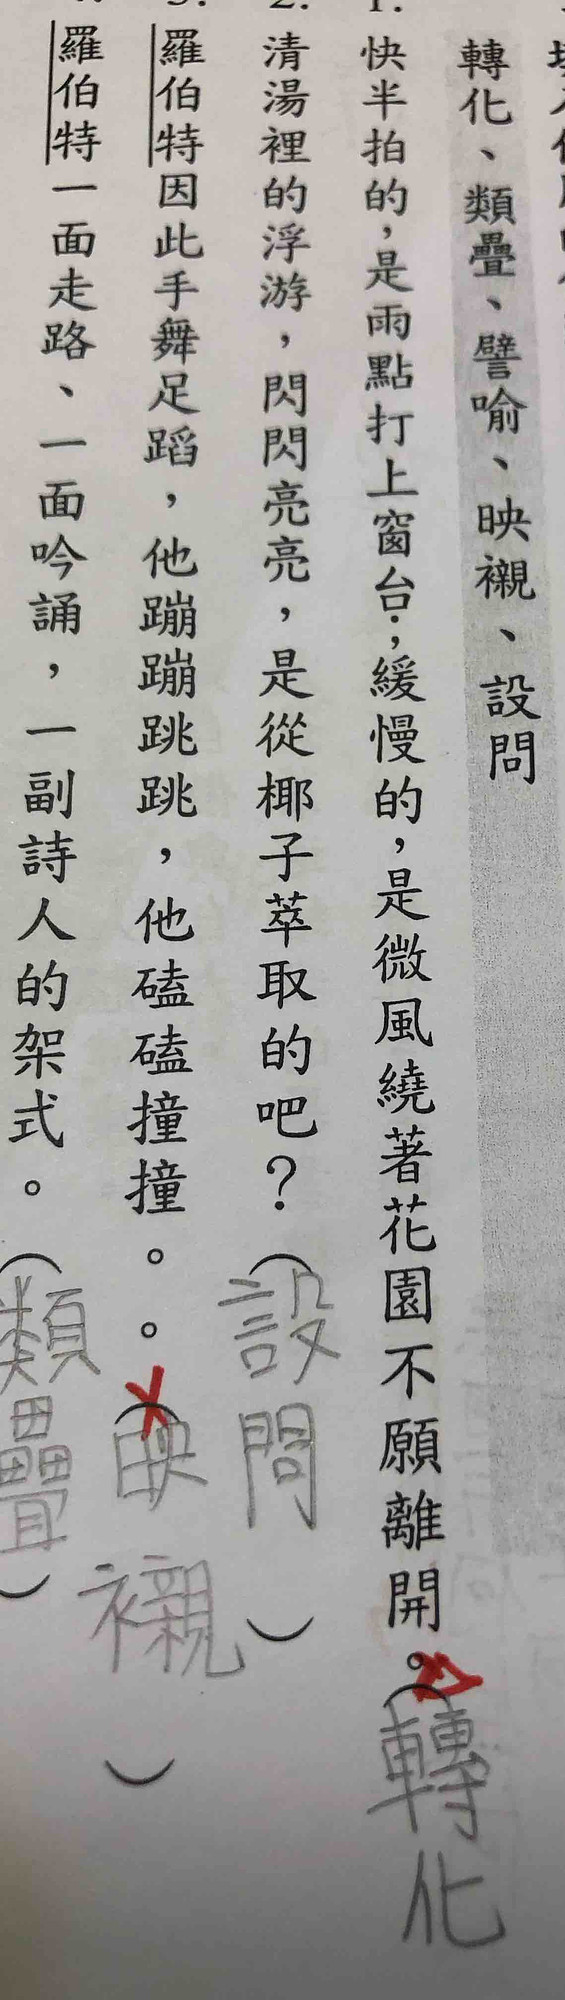 轉化、類疊、譬喻、映襯、設問
1. 快半拍的，是雨點打上窗台；緩慢的，是微風繞著花園不願離開。（轉化）
2. 清湯裡的浮游，閃閃亮亮，是從椰子萃取的吧？（設問）
3. 羅伯特因此手舞足蹈，他蹦蹦跳跳，他磕磕撞撞。。（映襯）
羅伯特一面走路、一面吟誦，一副詩人的架式。（類疊）